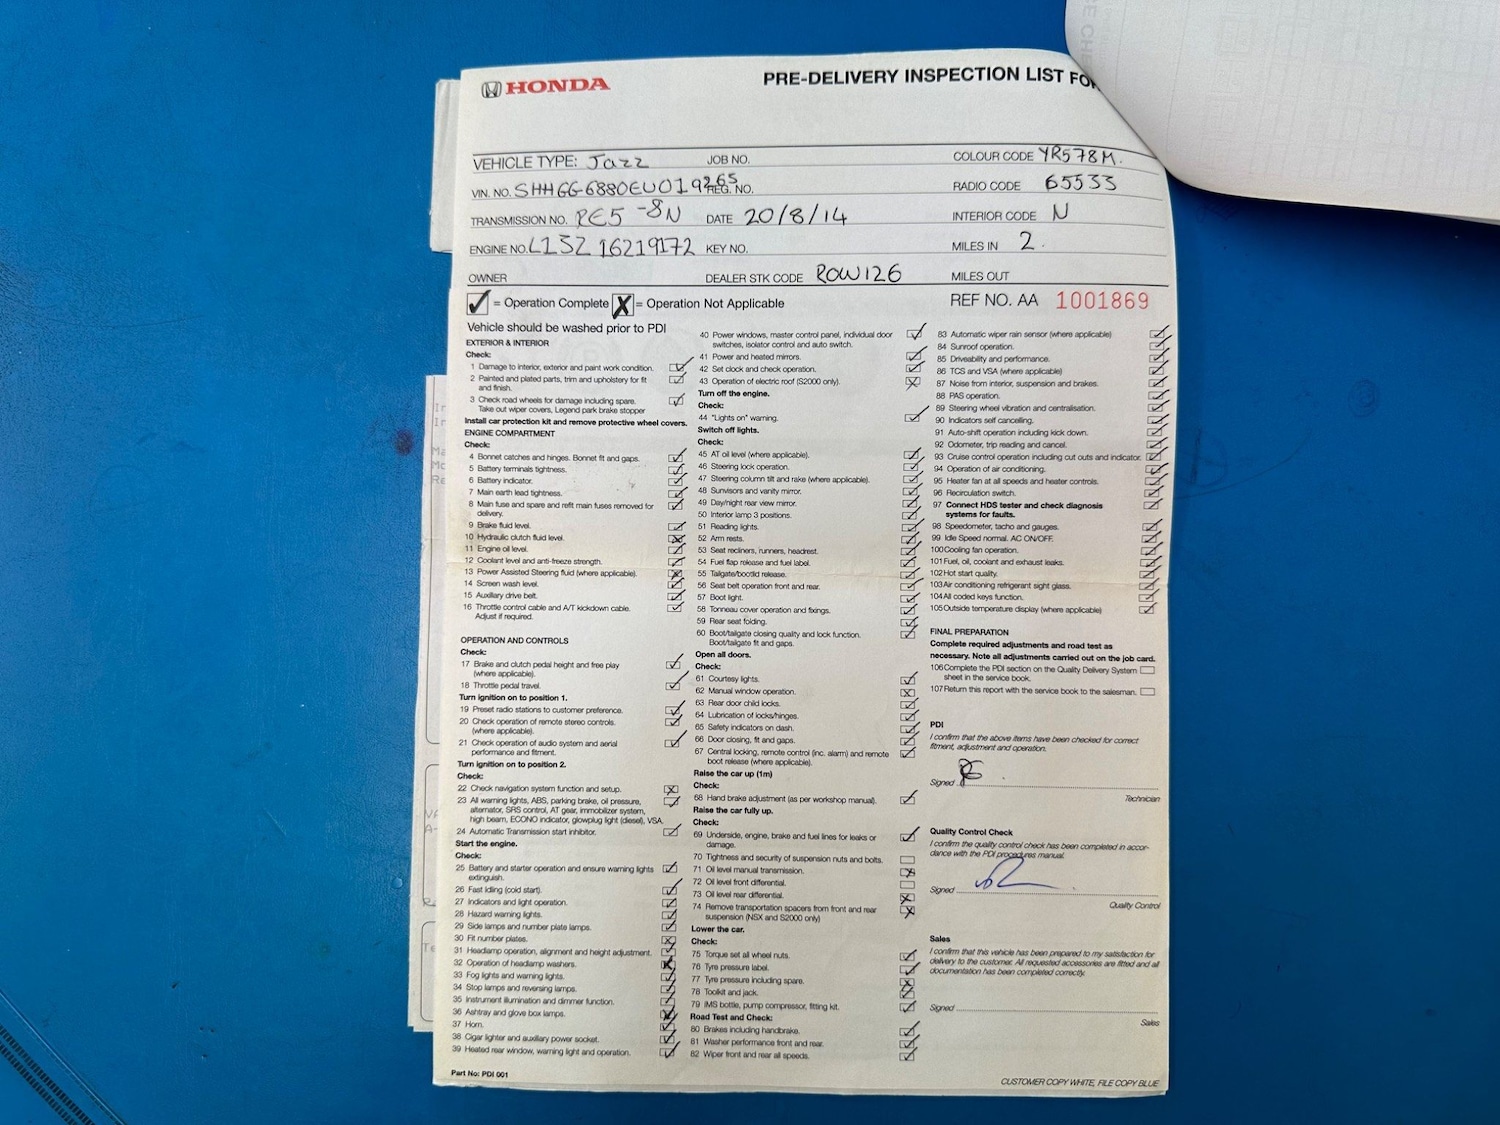 HONDA
PRE-DELIVERY INSPECTION LIST FO
VEHICLE TYPE: Jazz JOB NO. COLOUR CODE YR578M.
VIN. NO. SHHGG6880EU019265 REG. NO. RADIO CODE 65533
TRANSMISSION NO. RE5-8N DATE 20/8/14 INTERIOR CODE N
ENGINE NO. L13Z 16219172 KEY NO. MILES IN 2.
OWNER DEALER STK CODE ROW126 MILES OUT
= Operation Complete = Operation Not Applicable REF NO. AA 1001869
Vehicle should be washed prior to PDI
EXTERIOR & INTERIOR
Check:
1 Damage to interior, exterior and paint work condition.
2 Painted and plated parts, trim and upholstery for fit
and finish.
3 Check road wheels for damage including spare.
Take out wiper covers, Legend park brake stopper
Install car protection kit and remove protective wheel covers.
ENGINE COMPARTMENT
Check:
4 Bonnet catches and hinges. Bonnet fit and gaps.
5 Battery terminals tightness.
6 Battery indicator.
7 Main earth lead tightness.
8 Main fuse and spare and refit main fuses removed for
delivery.
9 Brake fluid level.
10 Hydraulic clutch fluid level.
11 Engine oil level.
12 Coolant level and anti-freeze strength.
13 Power Assisted Steering fluid (where applicable).
14 Screen wash level.
15 Auxiliary drive belt.
16 Throttle control cable and A/T kickdown cable.
Adjust if required.
OPERATION AND CONTROLS
Check:
17 Brake and clutch pedal height and free play
(where applicable).
18 Throttle pedal travel.
Turn ignition on to position 1.
19 Preset radio stations to customer preference.
20 Check operation of remote stereo controls.
(where applicable).
21 Check operation of audio system and aerial
performance and fitment.
Turn ignition on to position 2.
Check:
22 Check navigation system function and setup.
23 All warning lights, ABS, parking brake, oil pressure,
alternator, SRS control, AT gear, immobilizer system,
high beam, ECONO indicator, glowplug light (diesel), VSA.
24 Automatic Transmission start inhibitor.
Start the engine.
Check:
25 Battery and starter operation and ensure warning lights
extinguish.
26 Fast idling (cold start).
27 Indicators and light operation.
28 Hazard warning lights.
29 Side lamps and number plate lamps.
30 Fit number plates.
31 Headlamp operation, alignment and height adjustment.
32 Operation of headlamp washers.
33 Fog lights and warning lights.
34 Stop lamps and reversing lamps.
35 Instrument illumination and dimmer function.
36 Ashtray and glove box lamps.
37 Horn.
38 Cigar lighter and auxiliary power socket.
39 Heated rear window, warning light and operation.
Part No: PDI 001
40 Power windows, master control panel, individual door
switches, isolator control and auto switch.
41 Power and heated mirrors.
42 Set clock and check operation.
43 Operation of electric roof (S2000 only).
Turn off the engine.
Check:
44 "Lights on" warning.
Switch off lights.
Check:
45 AT oil level (where applicable).
46 Steering lock operation.
47 Steering column tilt and rake (where applicable).
48 Sunvisors and vanity mirror.
49 Day/night rear view mirror.
50 Interior lamp 3 positions.
51 Reading lights.
52 Arm rests.
53 Seat recliners, runners, headrest.
54 Fuel flap release and fuel label.
55 Tailgate/bootlid release.
56 Seat belt operation front and rear.
57 Boot light.
58 Tonneau cover operation and fixings.
59 Rear seat folding.
60 Boot/tailgate closing quality and lock function.
Boot/tailgate fit and gaps.
Open all doors.
Check:
61 Courtesy lights.
62 Manual window operation.
63 Rear door child locks.
64 Lubrication of locks/hinges.
65 Safety indicators on dash.
66 Door closing, fit and gaps.
67 Central locking, remote control (inc. alarm) and remote
boot release (where applicable).
Raise the car up (1m)
Check:
68 Hand brake adjustment (as per workshop manual).
Raise the car fully up.
Check:
69 Underside, engine, brake and fuel lines for leaks or
damage.
70 Tightness and security of suspension nuts and bolts.
71 Oil level manual transmission.
72 Oil level front differential.
73 Oil level rear differential.
74 Remove transportation spacers from front and rear
suspension (NSX and S2000 only)
Lower the car.
Check:
75 Torque set all wheel nuts.
76 Tyre pressure label.
77 Tyre pressure including spare.
78 Toolkit and jack.
79 IMS bottle, pump compressor, fitting kit.
Road Test and Check:
80 Brakes including handbrake.
81 Washer performance front and rear.
82 Wiper front and rear all speeds.
83 Automatic wiper rain sensor (where applicable)
84 Sunroof operation.
85 Driveability and performance.
86 TCS and VSA (where applicable)
87 Noise from interior, suspension and brakes.
88 PAS operation.
89 Steering wheel vibration and centralisation.
90 Indicators self cancelling.
91 Auto-shift operation including kick down.
92 Odometer, trip reading and cancel.
93 Cruise control operation including cut outs and indicator.
94 Operation of air conditioning.
95 Heater fan at all speeds and heater controls.
96 Recirculation switch.
97 Connect HDS tester and check diagnosis
systems for faults.
98 Speedometer, tacho and gauges.
99 Idle Speed normal. AC ON/OFF.
100 Cooling fan operation.
101 Fuel, oil, coolant and exhaust leaks.
102 Hot start quality.
103 Air conditioning refrigerant sight glass.
104 All coded keys function.
105 Outside temperature display (where applicable)
FINAL PREPARATION
Complete required adjustments and road test as
necessary. Note all adjustments carried out on the job card.
106 Complete the PDI section on the Quality Delivery System
sheet in the service book.
107 Return this report with the service book to the salesman.
PDI
I confirm that the above items have been checked for correct
fitment, adjustment and operation.
Signed
Technician
Quality Control Check
I confirm the quality control check has been completed in accor-
dance with the PDI procedures manual.
Signed
Quality Control
Sales
I confirm that this vehicle has been prepared to my satisfaction for
delivery to the customer. All requested accessories are fitted and all
documentation has been completed correctly.
Signed
Sales
CUSTOMER COPY WHITE, FILE COPY BLUE